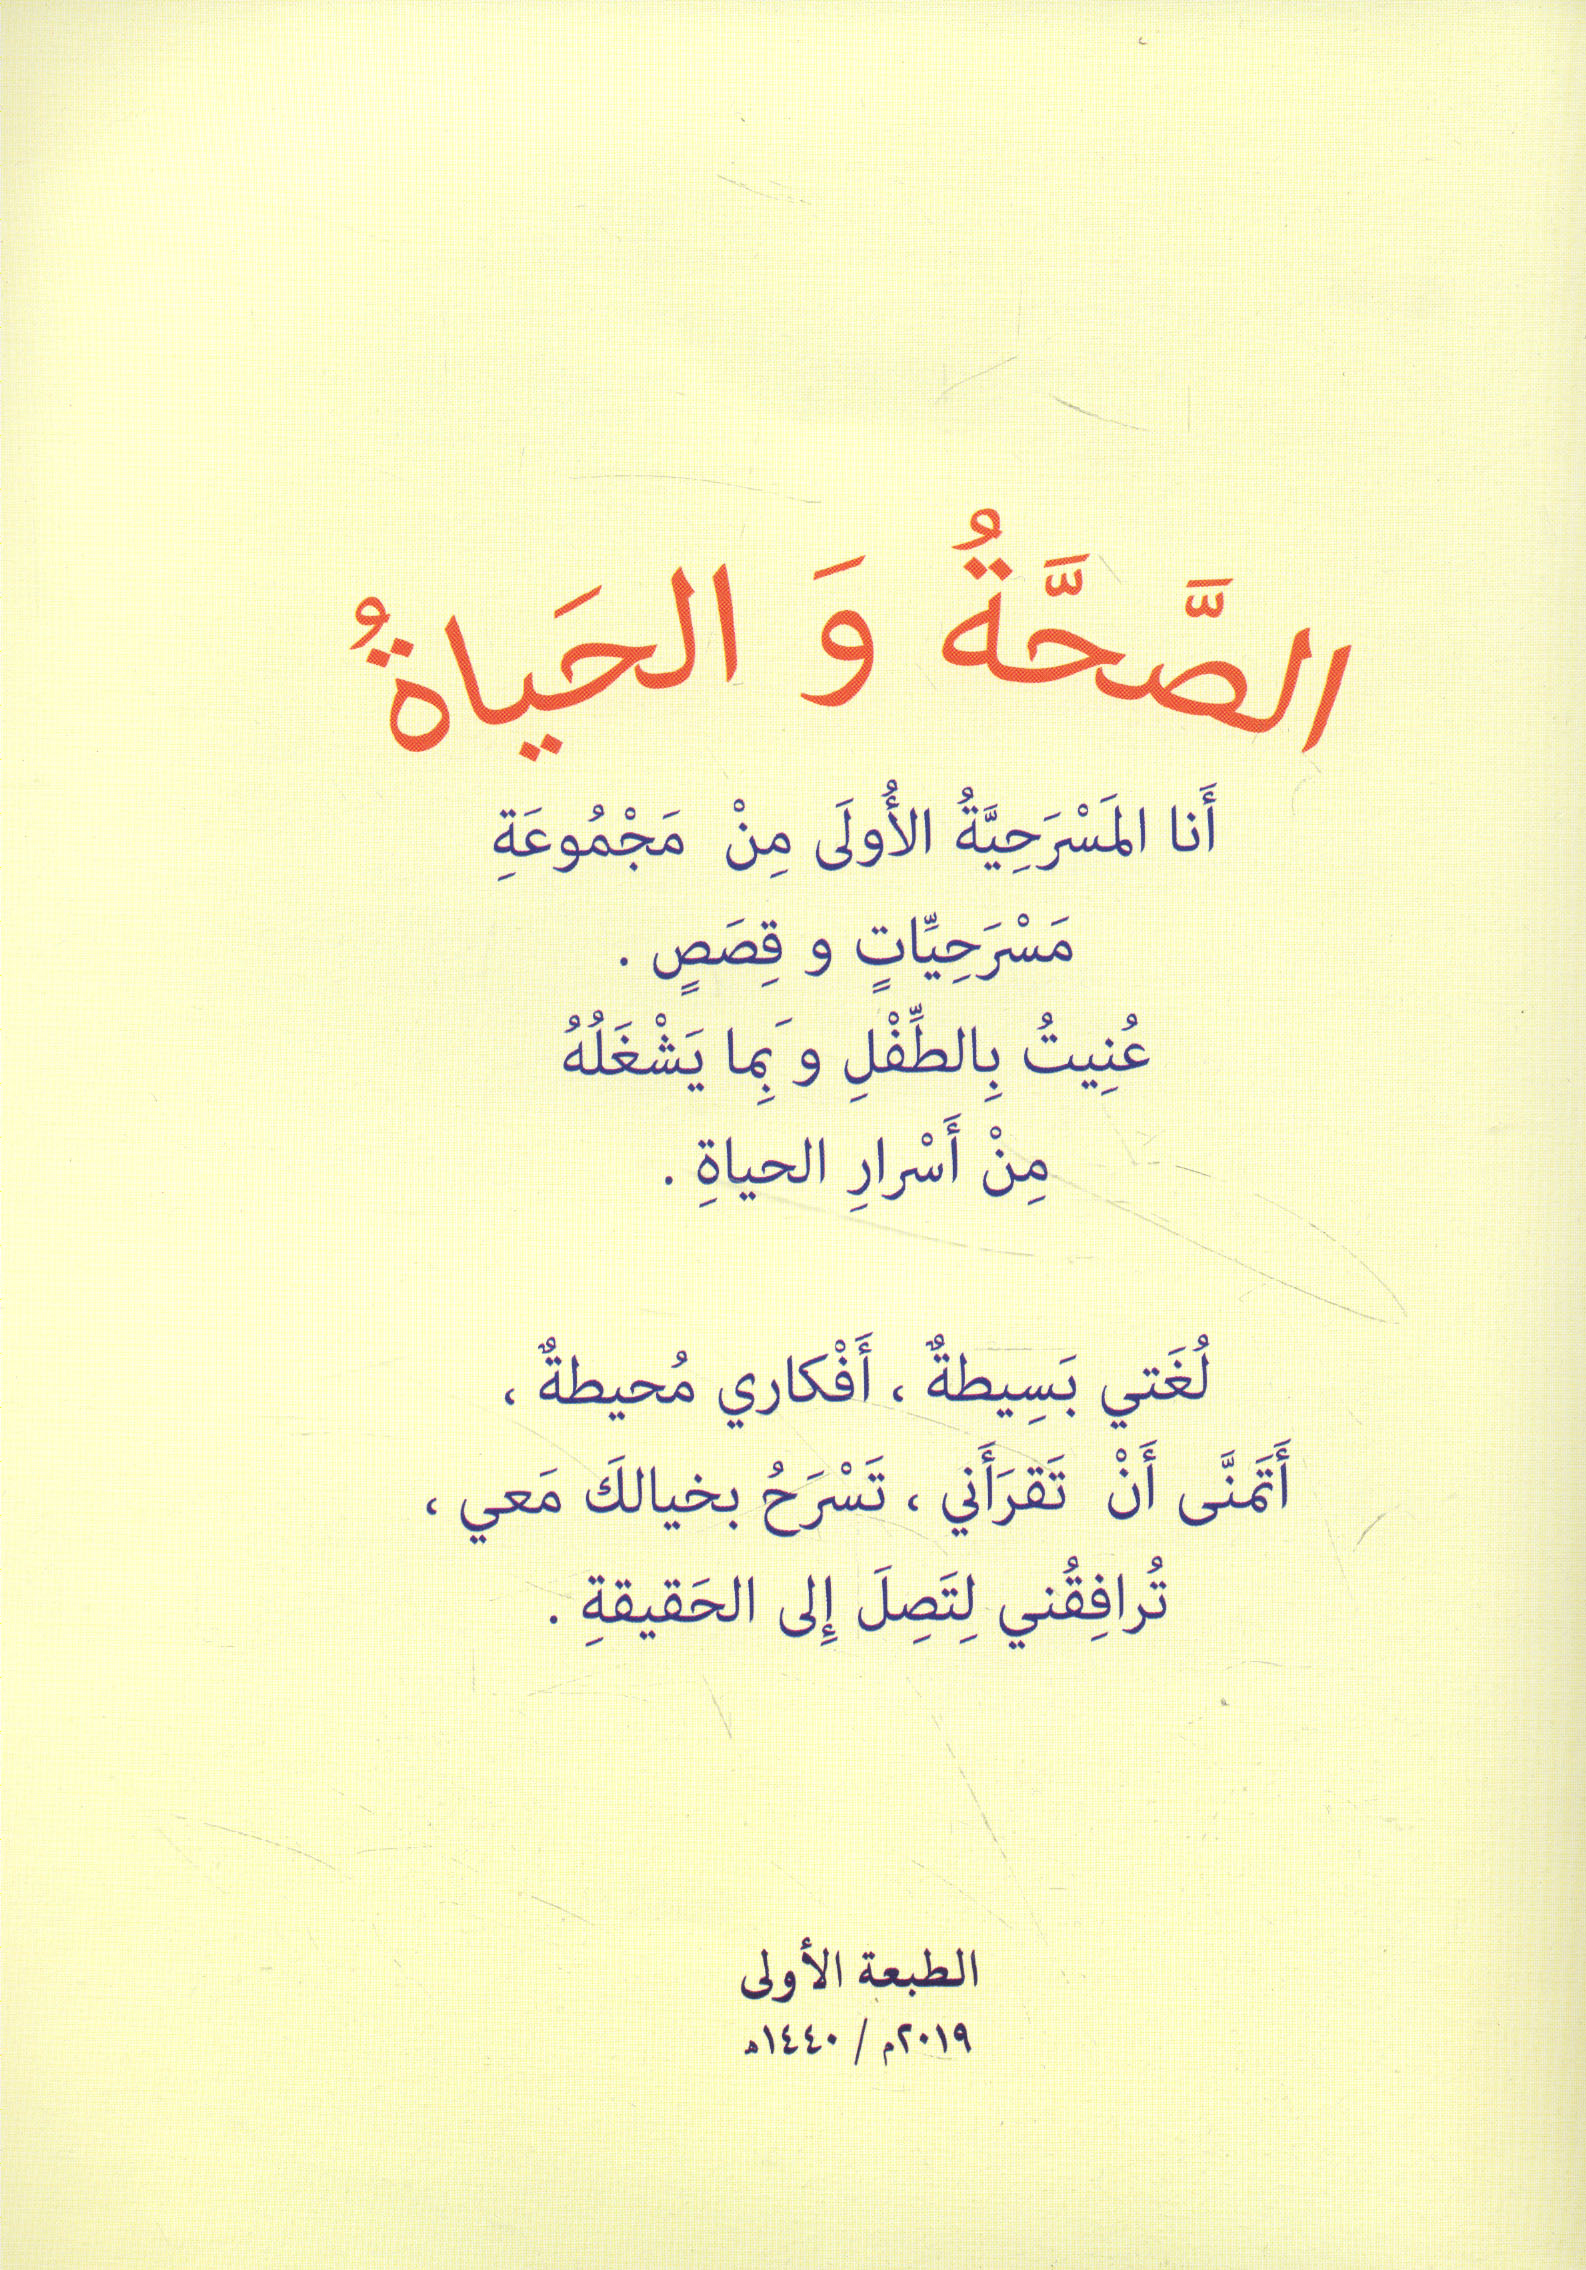 الصَّحَّةُ وَ الحَياةُ
أَنا المَسْرَحِيَّةُ الأُولَى مِنْ مَجْمُوعَةِ
مَسْرَحِيِّاتٍ و قِصَصٍ .
عُنِيتُ بِالطِّفْلِ وَ بِما يَشْغَلُهُ
مِنْ أَسْرارِ الحياةِ .
لُغَتي بَسِيطةٌ ، أَفْكاري مُحيطةٌ ،
أَتَمَنَّى أَنْ تَقرَأَني ، تَسْرَحُ بخيالكَ مَعي ،
تُرافِقُني لِتَصِلَ إِلى الحَقيقةِ .
الطبعة الأولى
٢٠١٩م / ١٤٤٠ه